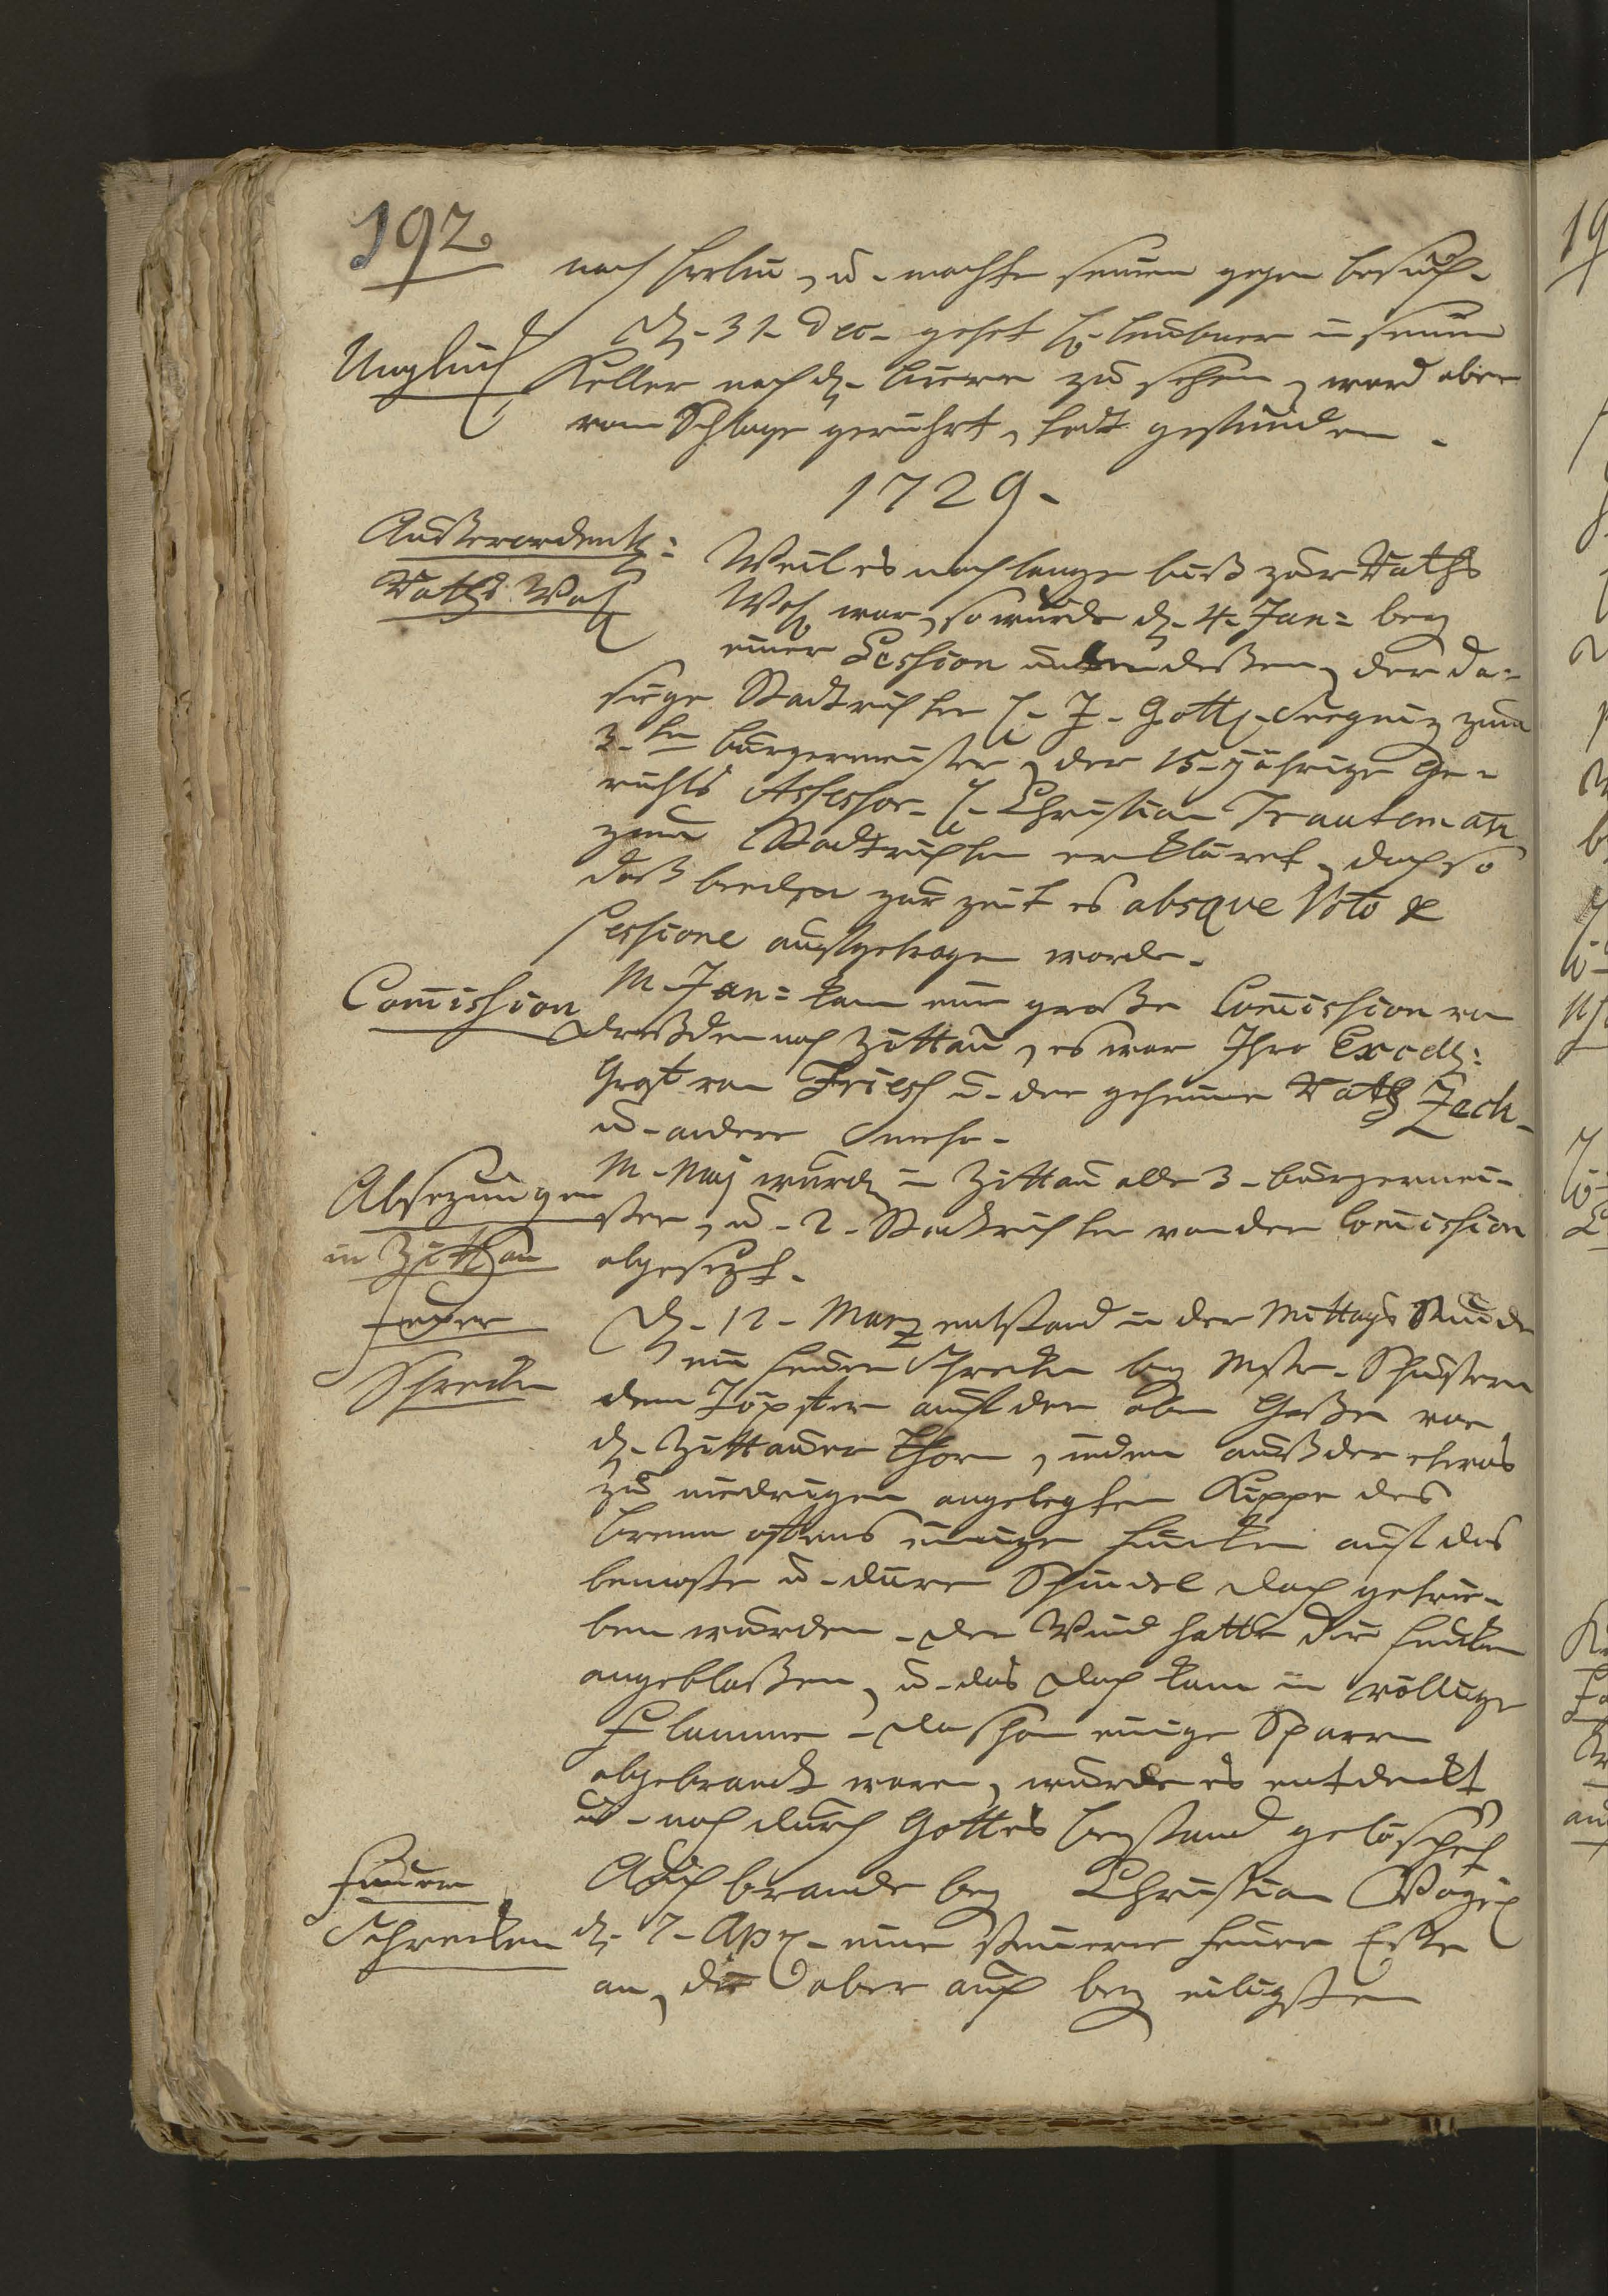 192
nach Berlin, u. machte seinen gegen besuch.
Unglück
D. 31. Dec. gehet H. Leubner in seinen
Keller nach d. Biere zu sehen, ward aber
vom Schlage gerührt, todt gefunden.
1729.
Außerordentl:
Raths Wahl
Weil es noch lange biß zur Raths
Wahl war, so wurde d. 4. Jan: bey
einer Session unterdeßen, der da-
sige Stadtrichter H. J. Gottl. Seegnitz zum
3.ten Bürgermeister, der 15. jährige Ge-
richts Assessor H. Christian Trauteman
zum Stadtrichter erkläret, doch so
daß beeden zur zeit es absque Voto &
sessione aufgetragen worde.
Comission
M. Jan: kam eine große Comission von
Dreßden nach Zittau, es war Ihro Excell:
Graf von Friesch u. der geheime Rath Zech.
u. andere mehr.
Absezungen
in Zittau
M. Maj wurd. in Zittau alle 3. bürgermei-
ster, u. 2. Stadtrichter von der Comission
abgesezt.
Feuer
Schrecken
D. 12. Marz entstand in der Mittags Stunde
ein Feuer Schrecken bey Mstr. Schustern
dem Töpfer auf der oben Gaßen vor
d. Zittauer Thore, indem auß der etwas
zu niedrigen angelegten Kippe des
brenn ofens einige funken auf das
bemoste u. dürre Schindel Dach getrie-
ben wurden. Der Wind hatte die funken
angeblaßen, u. das Dach kam in völlige
Flamme. Da schon einige Sparren
abgebrandt waren, wurde es entdeckt
u. noch durch Gottes beystand gelöschet
Feuer
Schrecken
Auch brande bey Christian
d. 7. Apr. eine steinerne feuer Eße
an, die aber auch bey eiligsten